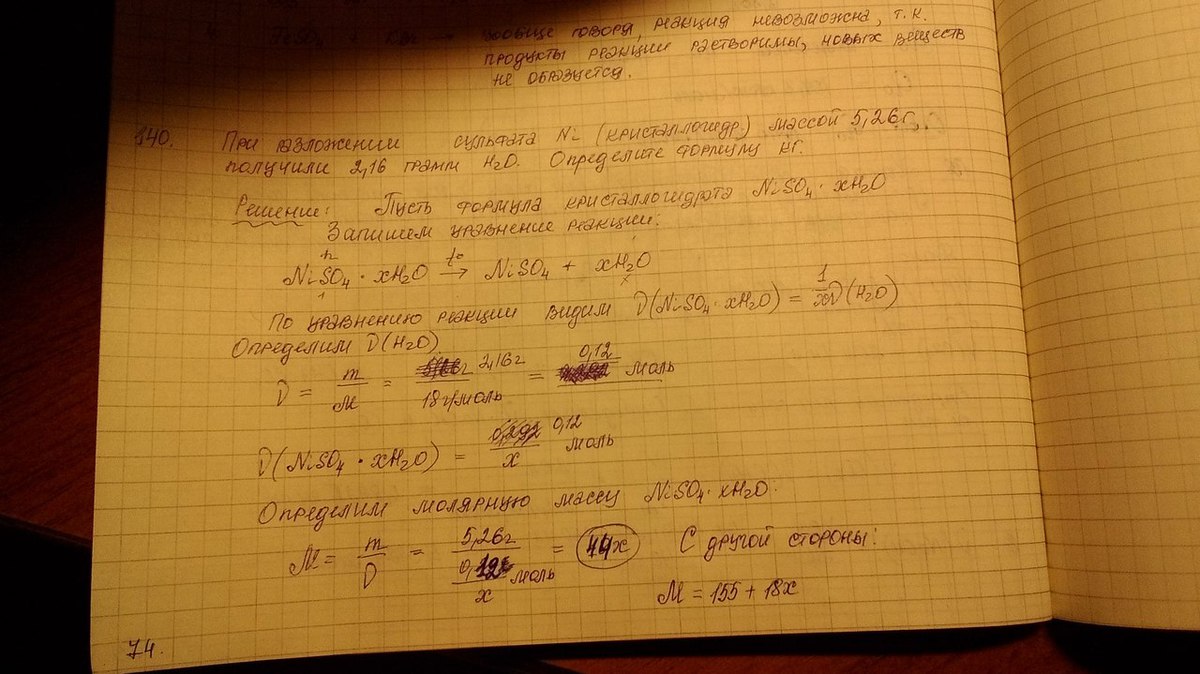 вообще говоря, реакция невозможна, т.к.
продукты реакции растворимы, новых веществ
не образуется.
140. При разложении сульфата Ni (кристаллогидр.) массой 5,26 г,
получили 2,16 грамм H₂O. Определите формулу кг.
Решение: Пусть формула кристаллогидрата NiSO₄ · xH₂O
Запишем уравнение реакции:
NiSO₄ · xH₂O →(t°) NiSO₄ + xH₂O
1 x
По уравнению реакции видим ν(NiSO₄ · xH₂O) = 1/x ν(H₂O)
Определим ν(H₂O)
ν = m/M = 2,16 г / 18 г/моль = 0,12 моль
ν(NiSO₄ · xH₂O) = 0,12/x моль
Определим молярную массу NiSO₄ · xH₂O.
M = m/ν = 5,26 г / (0,12/x) моль = 44x С другой стороны:
M = 155 + 18x
74.